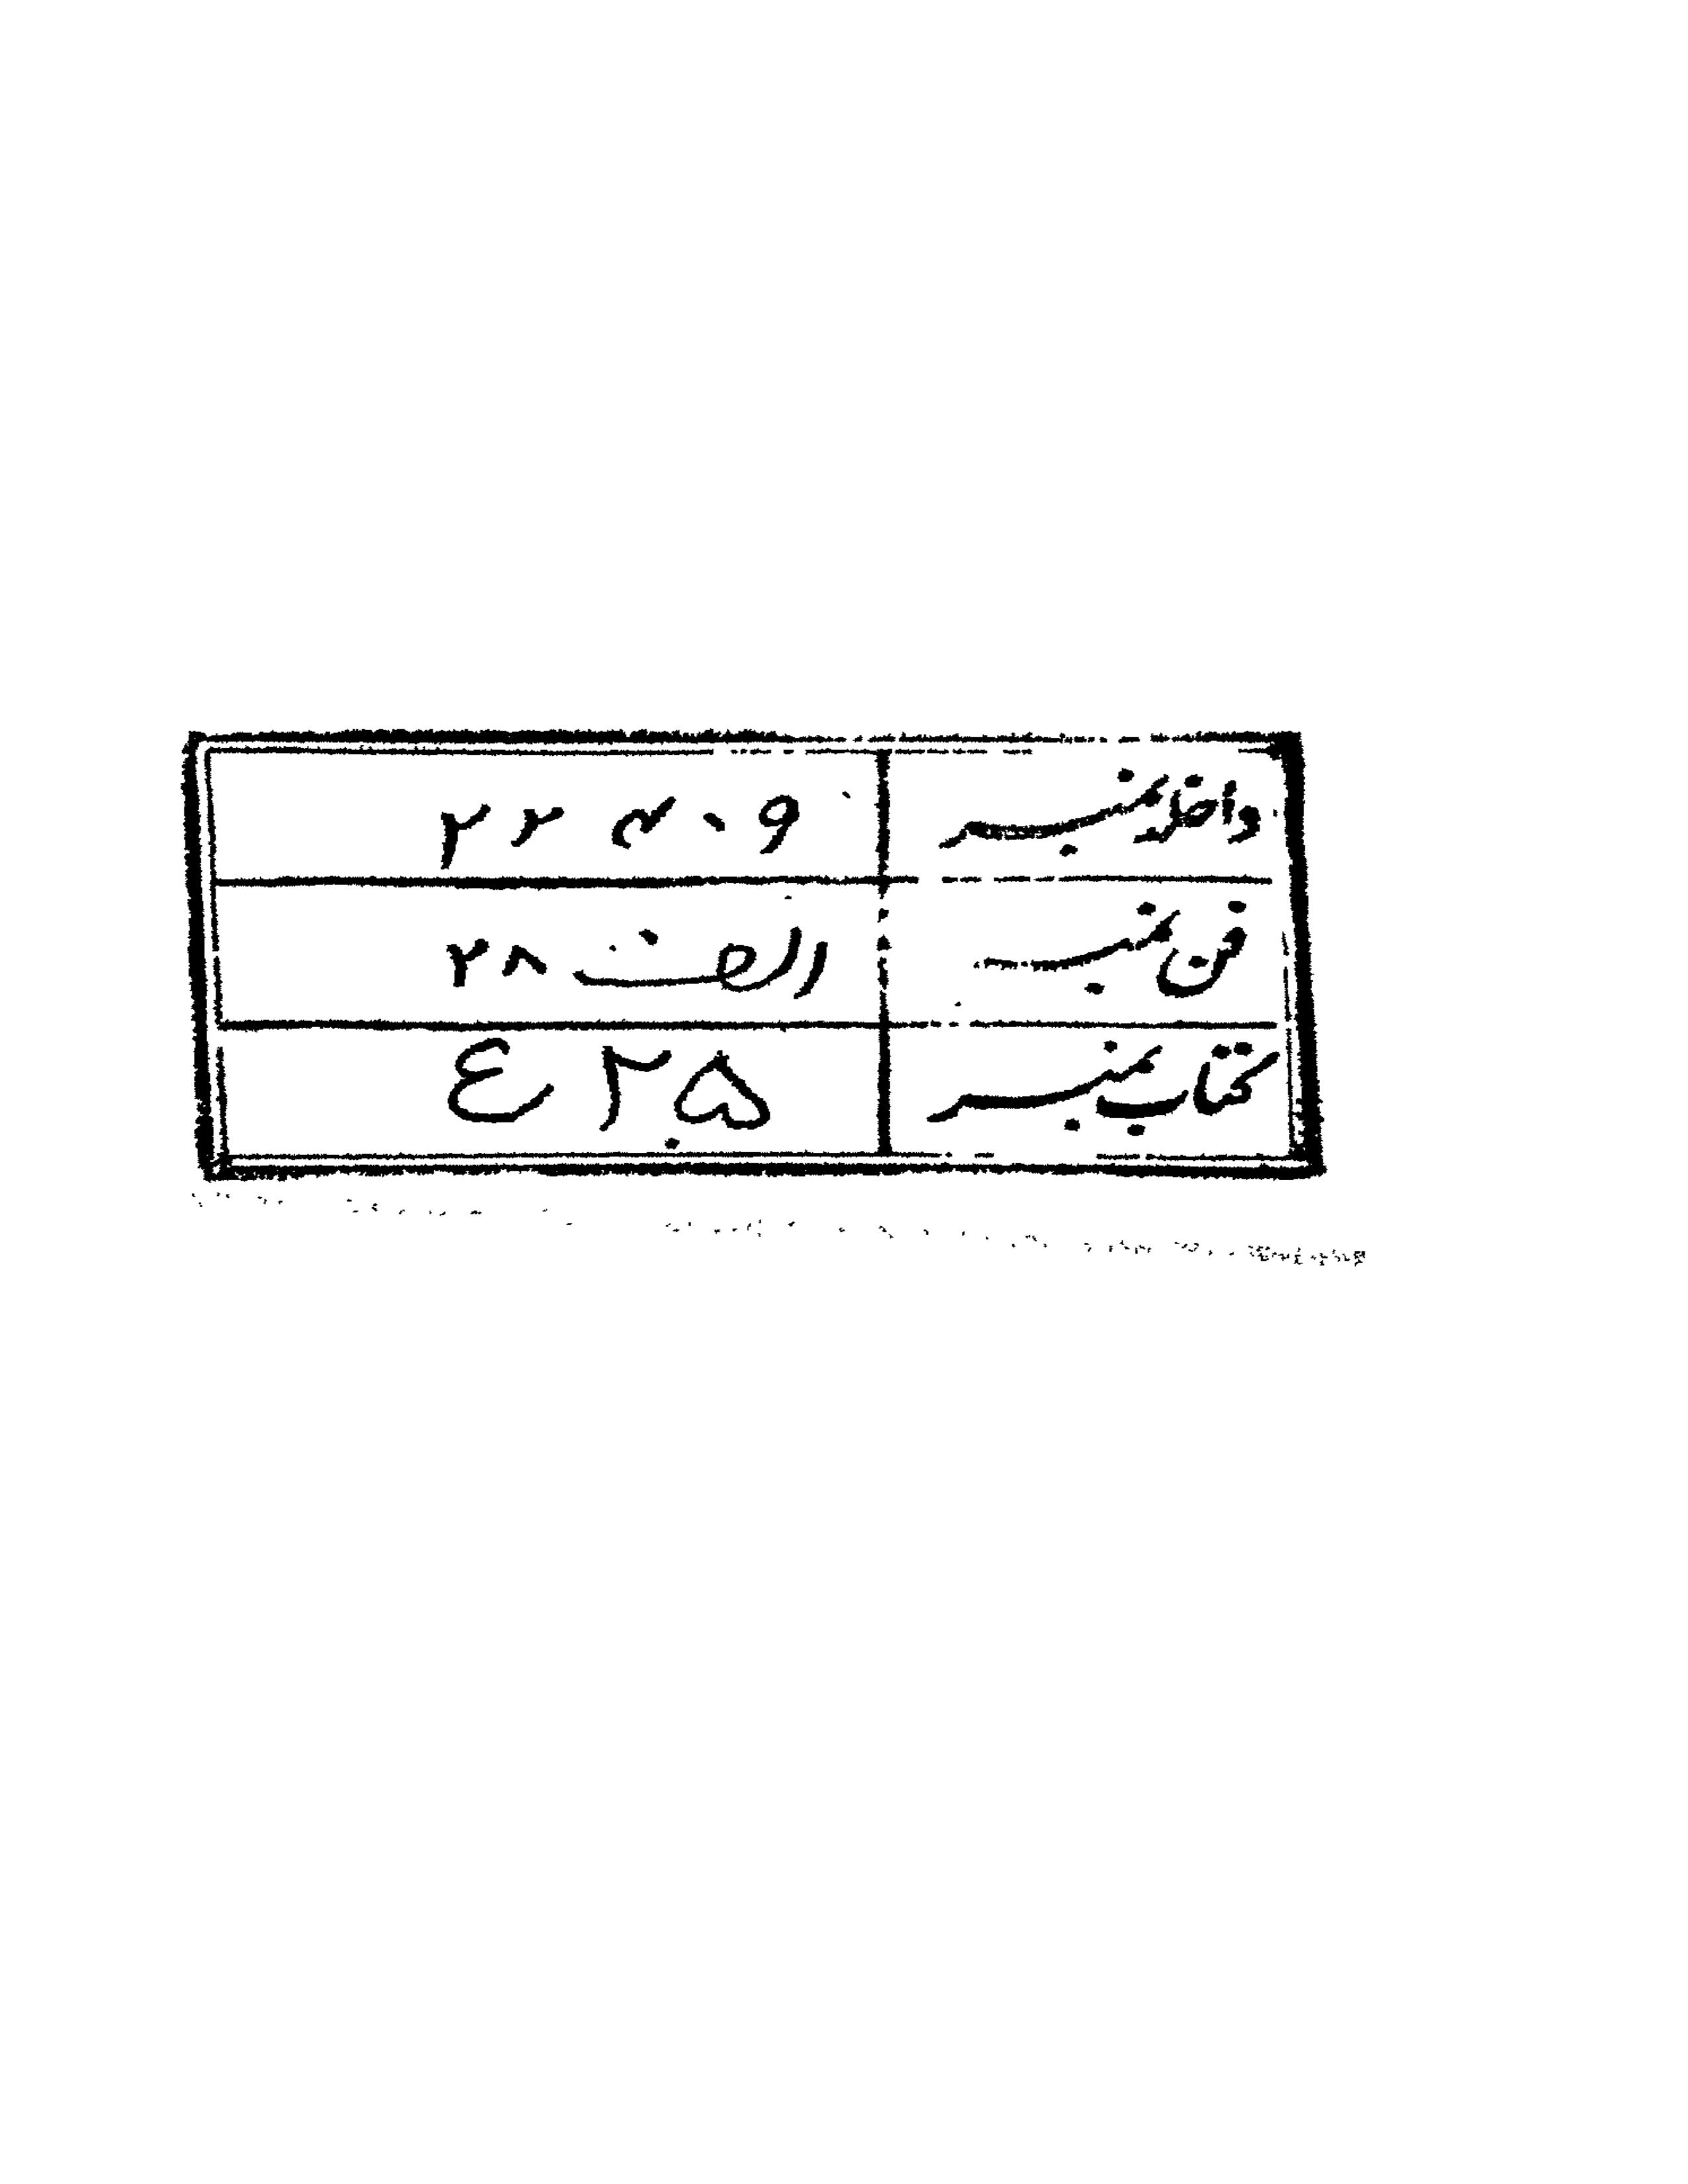 داخلہ نمبر ۲۲۴۰۹
فن نمبر الف ۲۸
کتاب نمبر ۲۵ ع